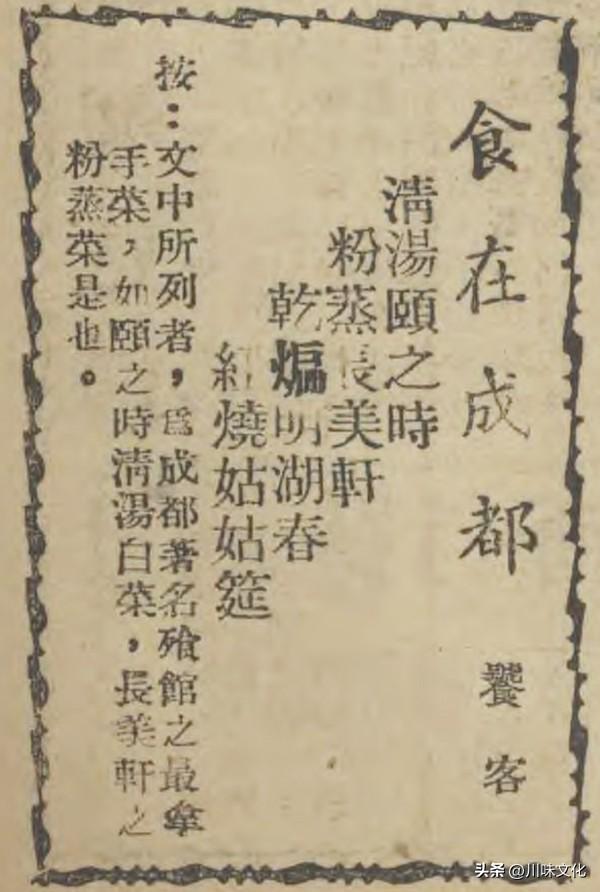 食在成都
饕客
清湯頤之時
粉蒸長美軒
乾煸明湖春
紅燒姑姑筵
按：文中所列者，爲成都著名飱館之最拿
手菜，如頤之時清湯白菜，長美軒之
粉蒸菜是也。
头条 @川味文化